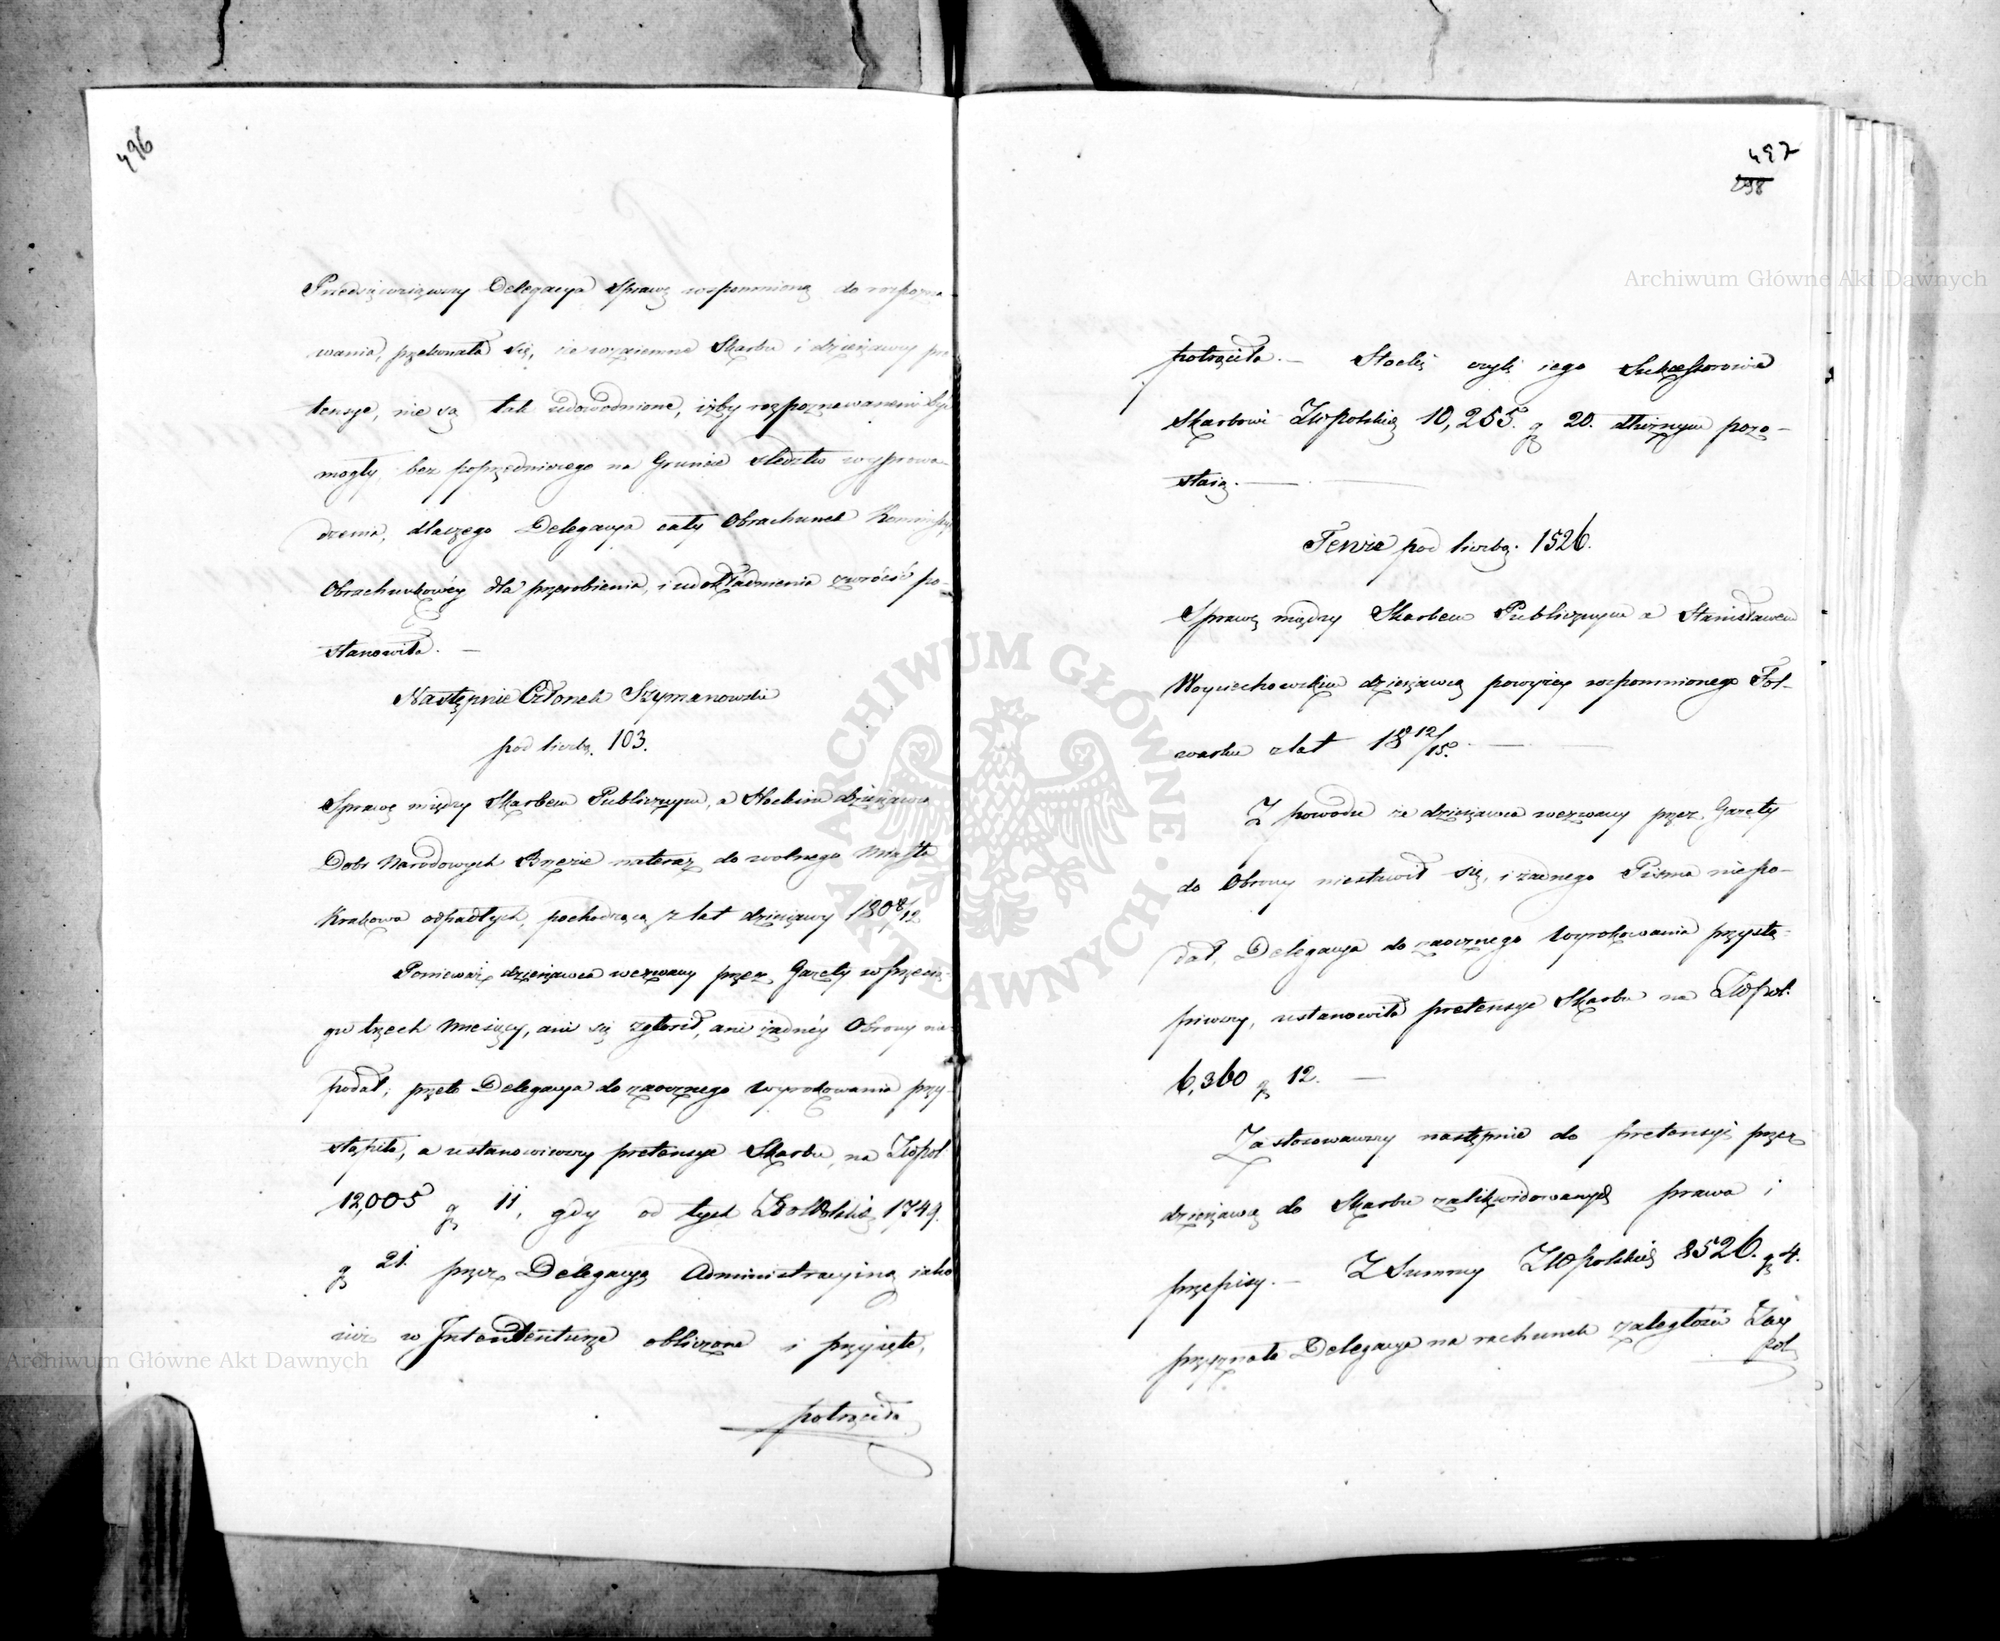 496
Przedsięwziąwszy Delegacya Sprawę wspomnioną do rozpozna-
wania, przekonała się, że wzaiemne Skarbu i dzierżawcy pre
tensye, nie są tak udowodnione, iżby rozpoznawanemi być
mogły, bez poprzedniczego na Gruncie śledztw wyprowa-
dzenia, dlaczego Delegacya cały Obrachunek Kommissyi
Obrachunkowéy dla przerobienia, i udokładnienia zwrócić po-
stanowiła. —
Następnie Członek Szymanowski
pod liczbą. 103.
Sprawę między Skarbem Publicznym, a Stockim dzierżawcą
Dobr Narodowych Brzezie nateraz do wolnego Miasta
Krakowa odpadłych, pochodzącą z lat dzierżawy 1808/12
Ponieważ dzierżawca wezwany przez Gazety w przecią-
gu trzech Miesięcy, ani się zgłosił, ani żadnéy Obrony nie
podał; przeto Delegacya do zaocznego Wyrokowania przy-
stąpiła, a ustanowiwszy pretensye Skarbu, na Złłpol
12,005 gr 11, gdy od tych Złłpolskich 1749.
gr 21. przez Delegacyą Administracyiną iako
iuż w Intendenturze obliczone i przyięte,
potrąciła
497
298
potrąciła. — Stocki czyli iego Sukcessorowie
Skarbowi Złłpolskich 10,255. gr 20. dłużnym pozo-
staią. —
Tenże pod liczbą. 1526.
Sprawę między Skarbem Publicznym a Stanisławem
Woyciechowskim dzierżawcą powyżey wspomnionego Fol-
warku z lat 18 12/15. —
Z powodu że dzierżawca wezwany przez Gazety
do Obrony niestawił się, i żadnego Pisma niepo-
dał, Delegacya do zaocznego Wyrokowania przystą-
piwszy, ustanowiła pretensye Skarbu na Złłpol.
6,360 gr 12. —
Zastosowawszy następnie do pretensyi przez
dzierżawcę do Skarbu zalikwidowanych prawa i
przepisy. — Z Summy Złłpolskich 8526. gr 4.
przyznała Delegacya na rachunek zaległości Złł
pol
Archiwum Główne Akt Dawnych
Archiwum Główne Akt Dawnych
ARCHIWUM GŁÓWNE AKT DAWNYCH